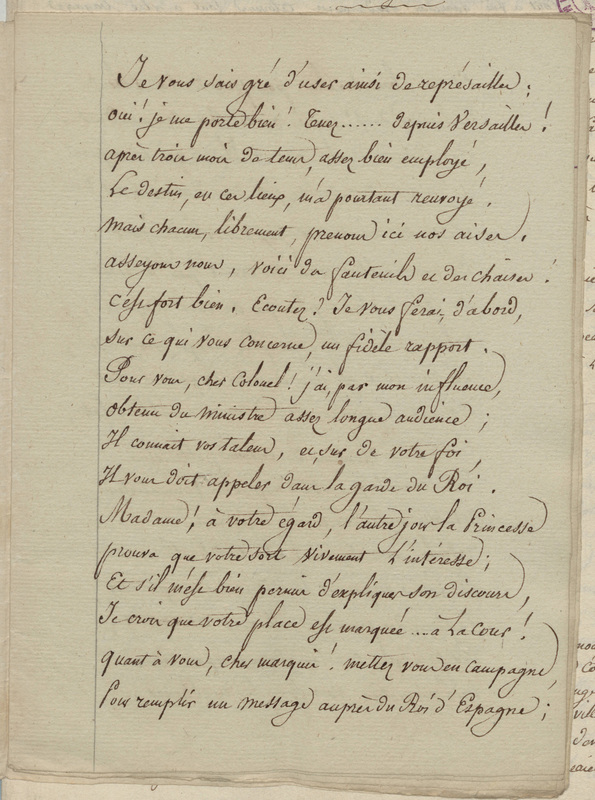 Je vous sais gré d'user ainsi de représailles ;
oui ! je me porte bien ! Tenez ...... depuis Versailles !
après trois mois de tems, assez bien employé,
Le destin, en ces lieux, m'a pourtant renvoyé !
mais chacun, librement, prenons ici nos aises,
asseyons nous, voici des fauteuils et des chaises !
c'est fort bien. Ecoutez ? Je vous ferai, d'abord,
sur ce qui vous concerne, un fidèle rapport.
Pour vous, cher Colonel ! j'ai, par mon influence,
obtenu du ministre assez longue audience ;
Il connait vos talens, et, sur de votre foi,
Il vous doit appeler dans la garde du Roi.
Madame ! à votre égard, l'autre jour la Princesse
prouva que votre sort vivement l'intéresse ;
Et s'il m'est bien permis d'expliquer son discours,
Je crois que votre place est marquée ... à La Cour !
quant à vous, cher marquis ! mettez vous en campagne
Pour remplir un message auprès du Roi d'Espagne ;